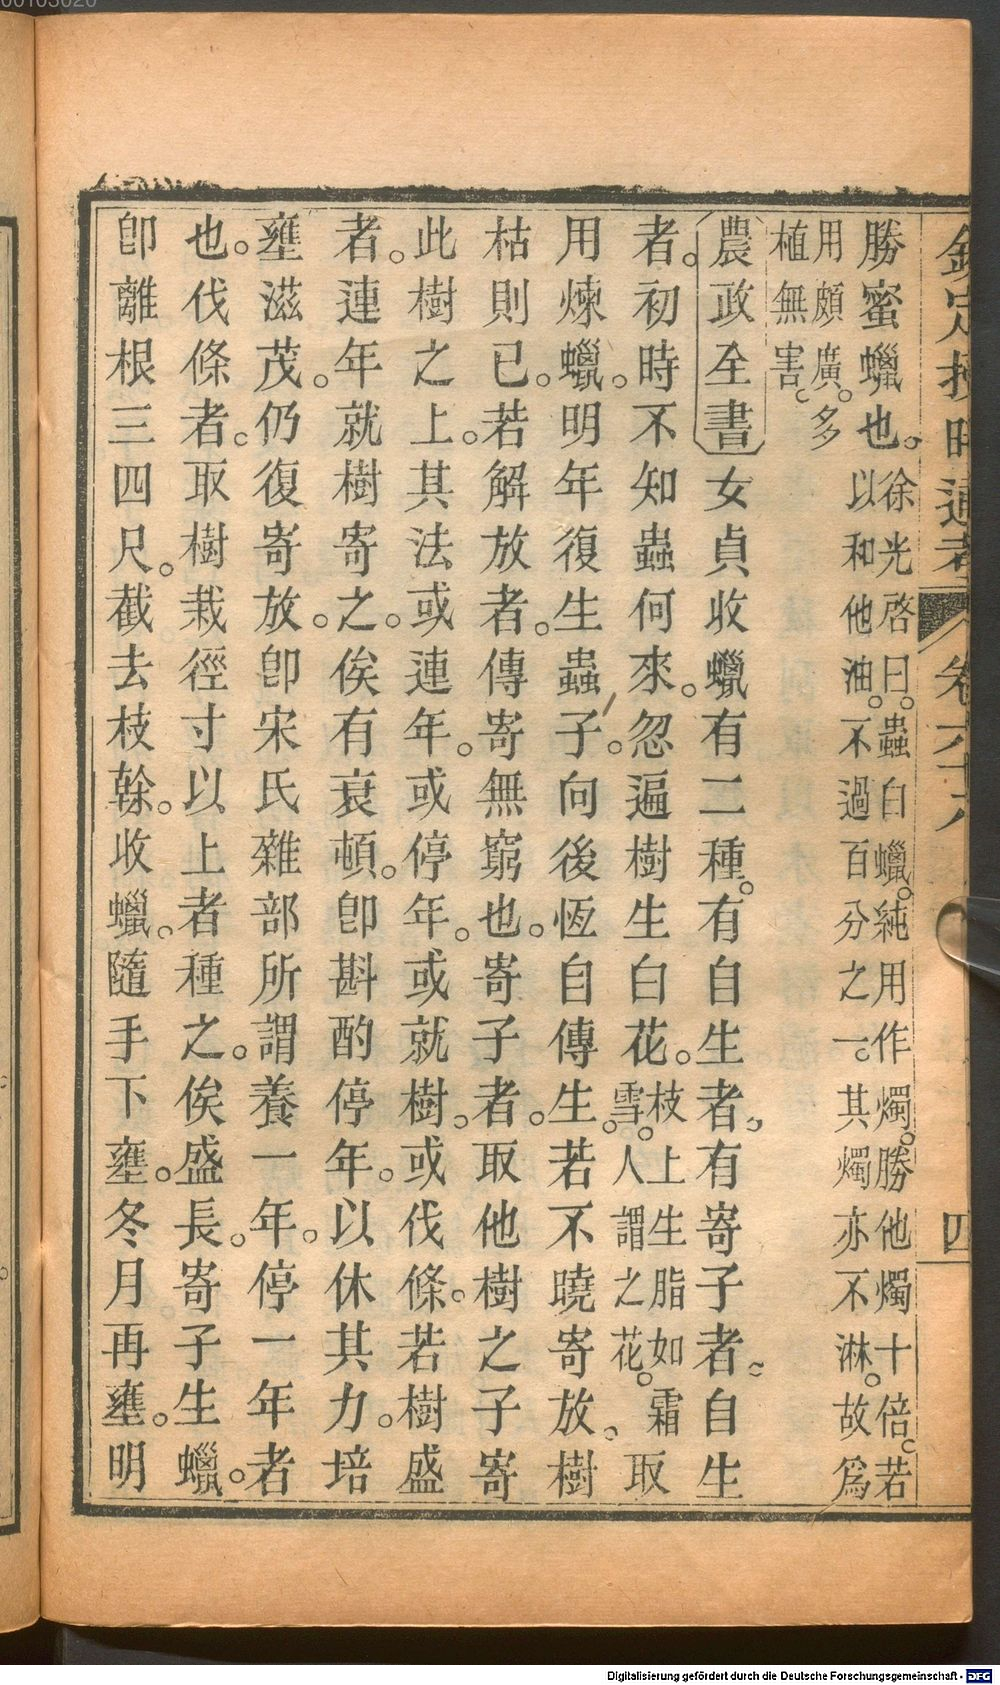 欽定授時通考 卷六十八 四
勝蜜蠟也。
徐光啓曰。蟲白蠟。純用作燭。勝他燭十倍。若
以和他油。不過百分之一。其燭亦不淋。故爲
用頗廣。多
植無害。
農政全書 女貞收蠟有二種。有自生者。有寄子者。自生
者。初時不知蟲何來。忽遍樹生白花。枝上生脂如霜雪。人謂之花。取
用煉蠟。明年復生蟲子。向後恆自傳生。若不曉寄放。樹
枯則已。若解放者。傳寄無窮也。寄子者。取他樹之子寄
此樹之上。其法或連年。或停年。或就樹。或伐條。若樹盛
者。連年就樹寄之。俟有衰頓。卽斟酌停年。以休其力。培
壅滋茂。仍復寄放。卽宋氏雜部所謂養一年。停一年者
也。伐條者。取樹栽徑寸以上者種之。俟盛長。寄子生蠟。
卽離根三四尺。截去枝榦。收蠟。隨手下壅。冬月再壅。明
Digitalisierung gefördert durch die Deutsche Forschungsgemeinschaft - DFG